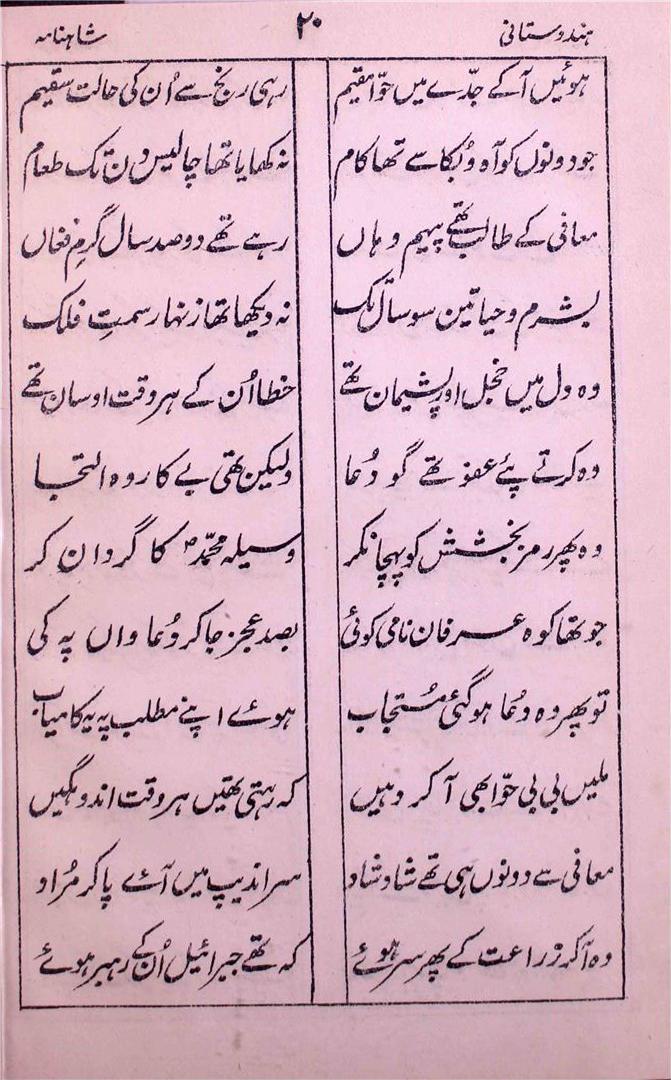 ہندوستانی ۲۰ شاہنامہ
ہوئیں آکے جدّے میں حوّا مقیم رہی رنج سے اُن کی حالت سقیم
جو دونوں کو آہ و بُکا سے تھا کام نہ کھایا تھا چالیس دن تک طعام
معافی کے طالب تھے پیہم وہاں رہے تھے دو صد سال گرمِ فغاں
بشرم و حیا تین سو سال تک نہ دیکھا تھا زنہار سمتِ فلک
وہ دل میں خجل اور پشیمان تھے خطا اُن کے ہر وقت اوسان تھے
وہ کرتے پئے عفو تھے گو دُعا ولیکن تھی بے کار وہ التجا
وہ پھر رمز بخشش کو پہچانکر وسیلہ محمّدؐ کا گردان کر
جو تھا کوہ عرفان نامی کوئی بصد عجز جا کر دُعا واں پہ کی
تو پھر وہ دُعا ہو گئی مُستجاب ہوئے اپنے مطلب پہ یہ کامیاب
ملیں بی بی حوّا بھی آ کر وہیں کہ رہتی تھیں ہر وقت اندوہگیں
معافی سے دونوں ہی تھے شاد شاد سراندیپ میں آئے پا کر مُراد
وہ آکر زراعت کے پھر سر ہوئے کہ تھے جبرائیل اُن کے رہبر ہوئے